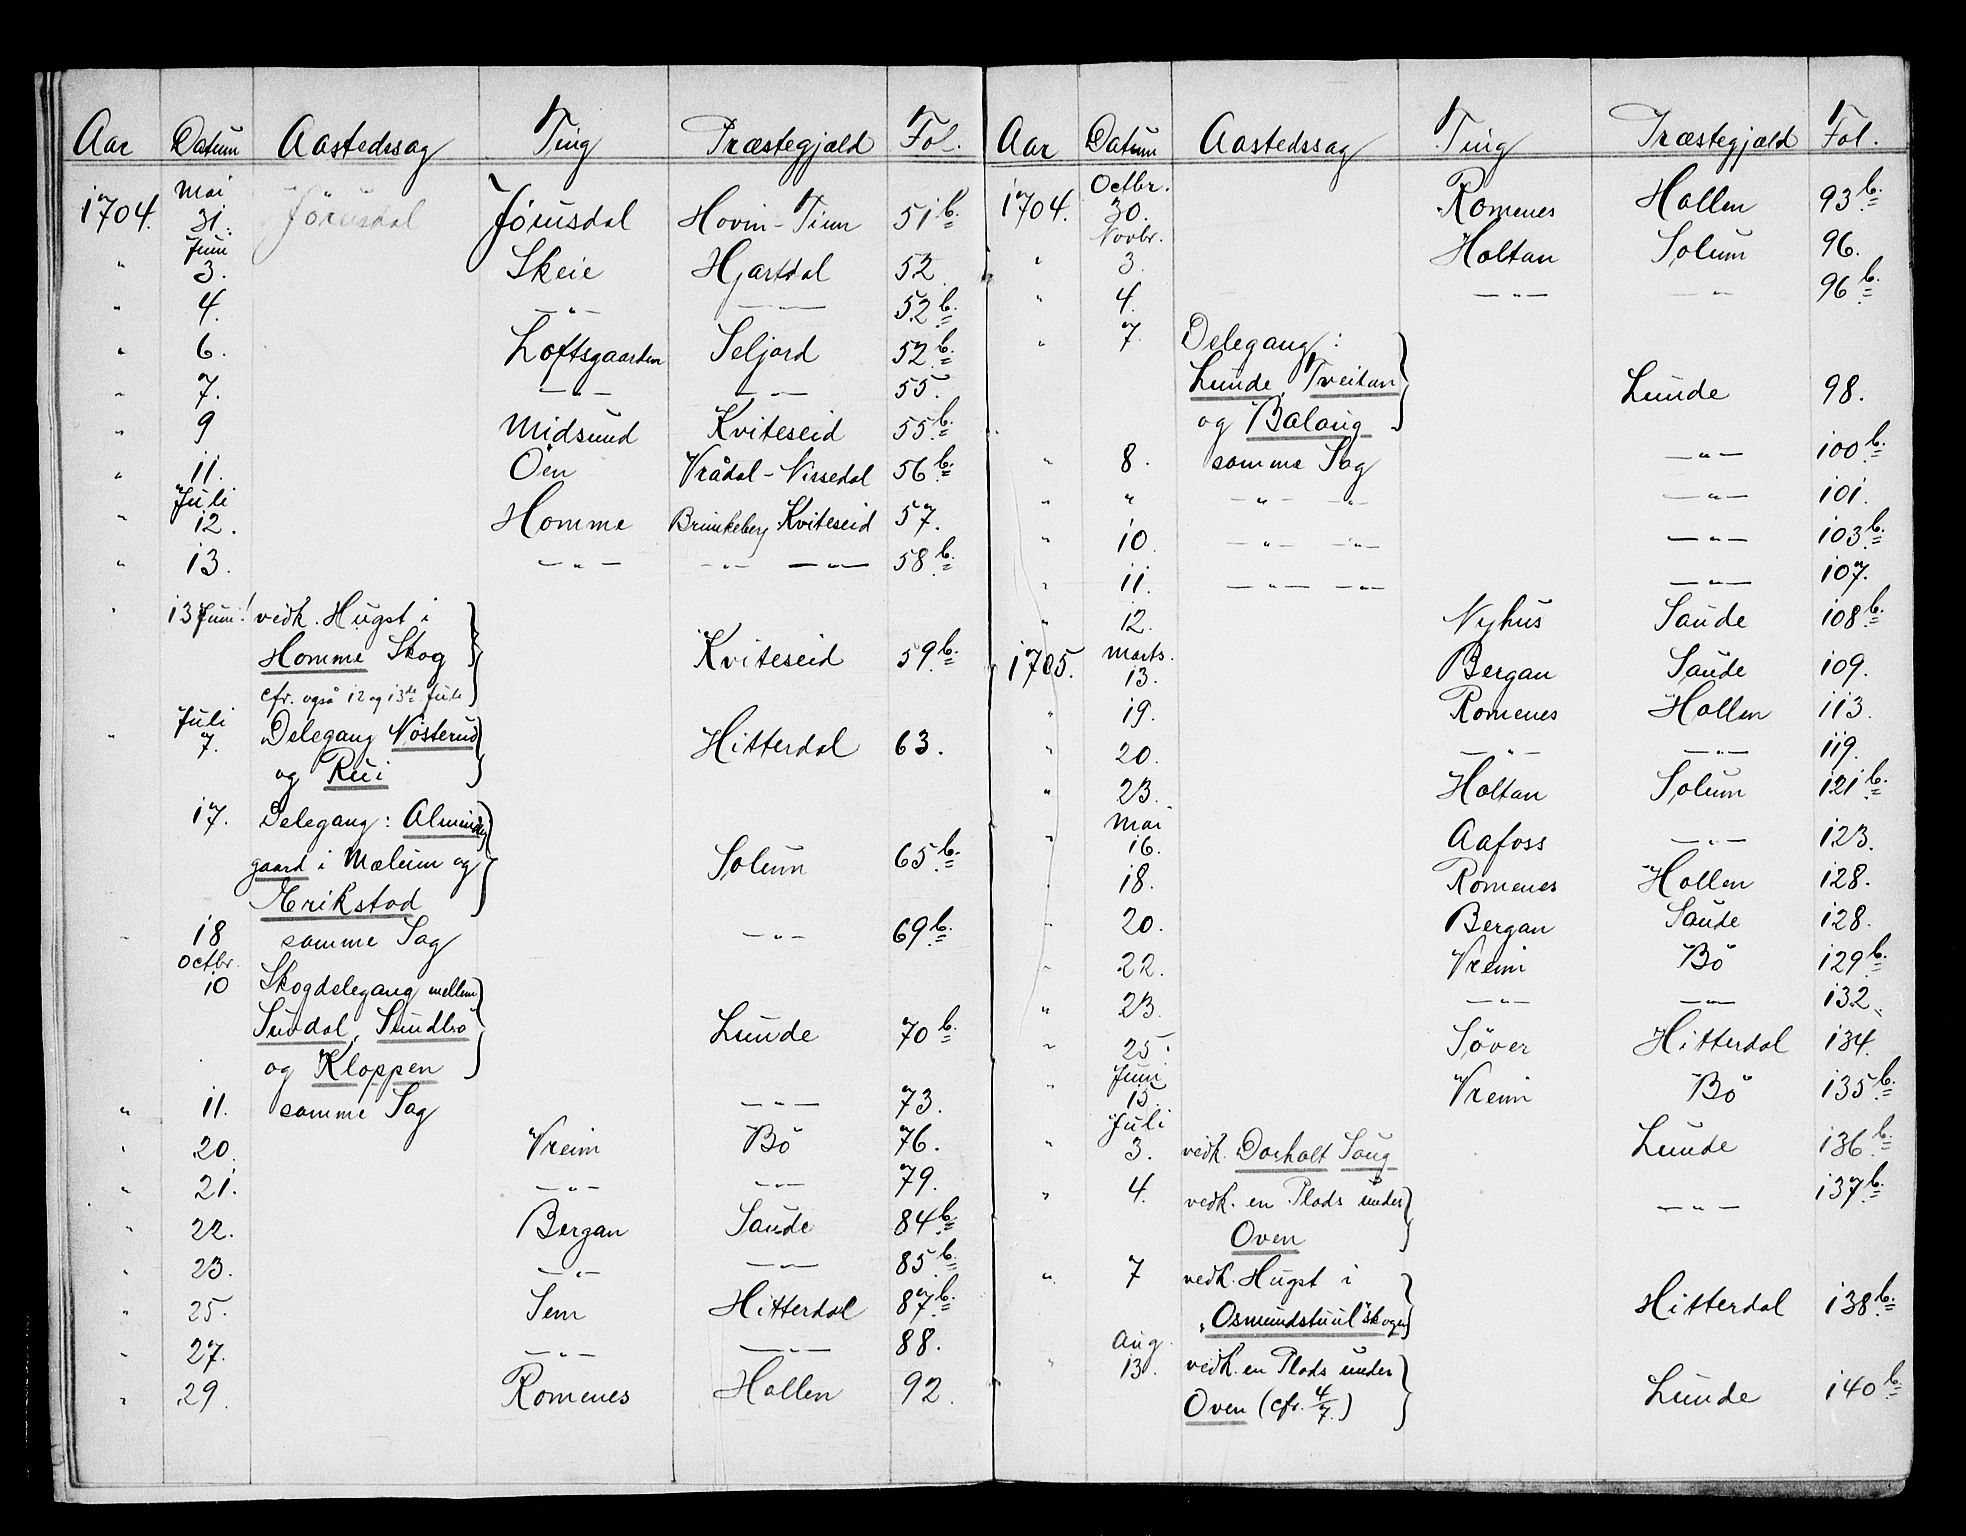 Aar Datum Aastedssag Ting Præstegjæld Fol.
Mai
1704. 31. Jørusdal Jørusdal Hovin - Tinn 51 b.
Juni
" 3. Skeie Hjartdal 52
" 4. — " — — — 52 b.
" 6. Loftsgaarden Seljord 52 b.
" 7. — " — — " — 55.
" 9 Midsund Kviteseid 55 b.
" 11. Öen Vrådal - Nissedal 56 b.
Juli
" 12. Homme Brunkeberg Kviteseid 57.
" 13. — " — — " — — " — 58 b.
" 13 Juni! vedk. Hugst i
Homme Skog Kviteseid 59 b.
cfr. også 12 og 13de Juli
Juli
" 7. Delegang Nösterud
og Rui Hitterdal 63.
17. Delegang: Alminding
gaard i Mælum og Solum 65 b.
Erikstad
" 18 samme Sag — " — 69 b.
Octbr.
10 Skogdelegang mellem
Suvdal, Sundbö Lunde 70 b.
og Kloppen
" 11. samme Sag — " — 73.
" 20. Vreim Bö 76.
" 21. — " — — " — 79.
" 22. Bergan Saude 84 b.
" 23. — " — — " — 85 b.
" 25. Sem Hitterdal 87 b.
" 27. — " — — " — 88.
" 29. Romenes Hollen 92.
Aar Datum Aastedssag Ting Præstegjæld Fol.
Octbr.
1704. 30. Romenes Hollen 93 b.
Novbr.
" 3. Holtan Solum 96.
" 4. — " — — " — 96 b.
" 7. Delegang:
Lunde, Tveitan Lunde 98.
og Balaug
" 8. samme Sag — " — 100 b.
" " — " — — " — — " — 101.
" 10. — " — — " — — " — 103 b.
" 11. — " — — " — — " — 107.
" 12. Nyhus Saude 108 b.
Marts.
1705. 13. Bergan Saude 109.
" 19. Romenes Hollen 113.
" 20. — " — — " — 119.
" 23. Holtan Solum 121 b.
Mai
" 16. Aafoss — " — 123.
" 18. Romenes Hollen 128.
" 20. Bergan Saude 128.
" 22. Vreim Bö 129 b.
" 23. — " — — " — 132.
" 25. Söver Hitterdal 134.
Juni
" 15. Vreim Bö 135 b.
Juli
" 3. vedk. Dorholt Saug Lunde 136 b.
" 4. vedk. en Plads under — " — 137 b.
Oven
" 7 vedk. Hugst i
"Osmundstuul"skogen Hitterdal 138 b.
Aug.
" 13. vedk. en Plads under
Oven (cfr. 4/7.) Lunde 140 b.